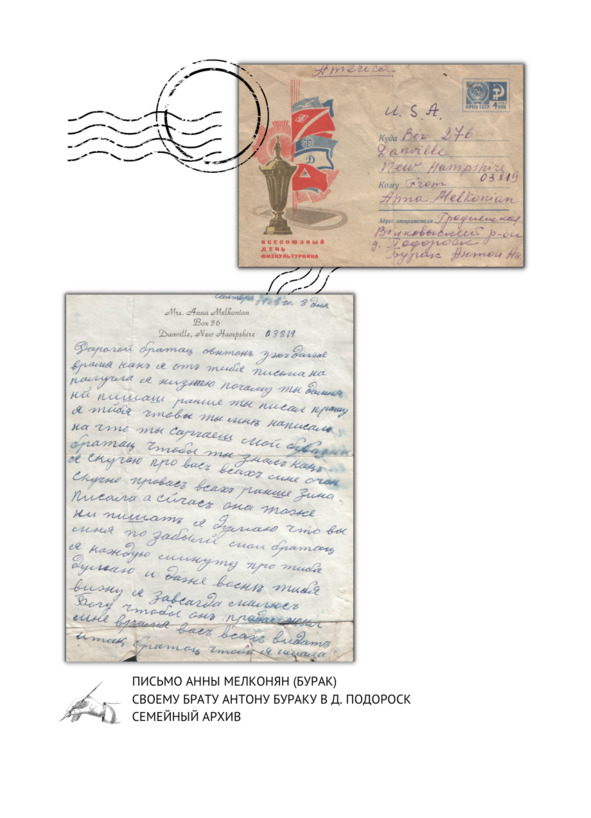 America
U. S. A.
ПОЧТА СССР 4 КОП
Куда Box 276
Danville
New Hampshire
03819
Кому From
Anna Melkonian
Адрес отправителя Гродненская
Волковысский р-он
д. Подороск
Бурак Антон Ив
ВСЕСОЮЗНЫЙ
ДЕНЬ
ФИЗКУЛЬТУРНИКА
3 дня
Mrs. Anna Melkonian
Box 36
Danville, New Hampshire 03819
Дарогей братац овнтонъ узождалае
врамя какъ я отъ тибя письма на
палучела я низнаю почаму ты долга
ни пишаш раньше ты писал прашу
я тибя чтобы ты мнѣ написалъ
на что ты сарчаеш мой
братац чтобы ты зналъ какъ
я скучаю про васъ всахъ мне очен
скучно провасъ всахъ ранше Зина
писала а сйчасъ она тоже
ни пишатъ я думаю что вы
мня по забыли мои братац
я каждую минуту про тибя
думаю и даже воснѣ тибя
вижу я завсагда малюсъ
Богу чтобы онъ
мне врамя васъ всахъ видать
итак братац чтобы я
ПИСЬМО АННЫ МЕЛКОНЯН (БУРАК)
СВОЕМУ БРАТУ АНТОНУ БУРАКУ В Д. ПОДОРОСК
СЕМЕЙНЫЙ АРХИВ